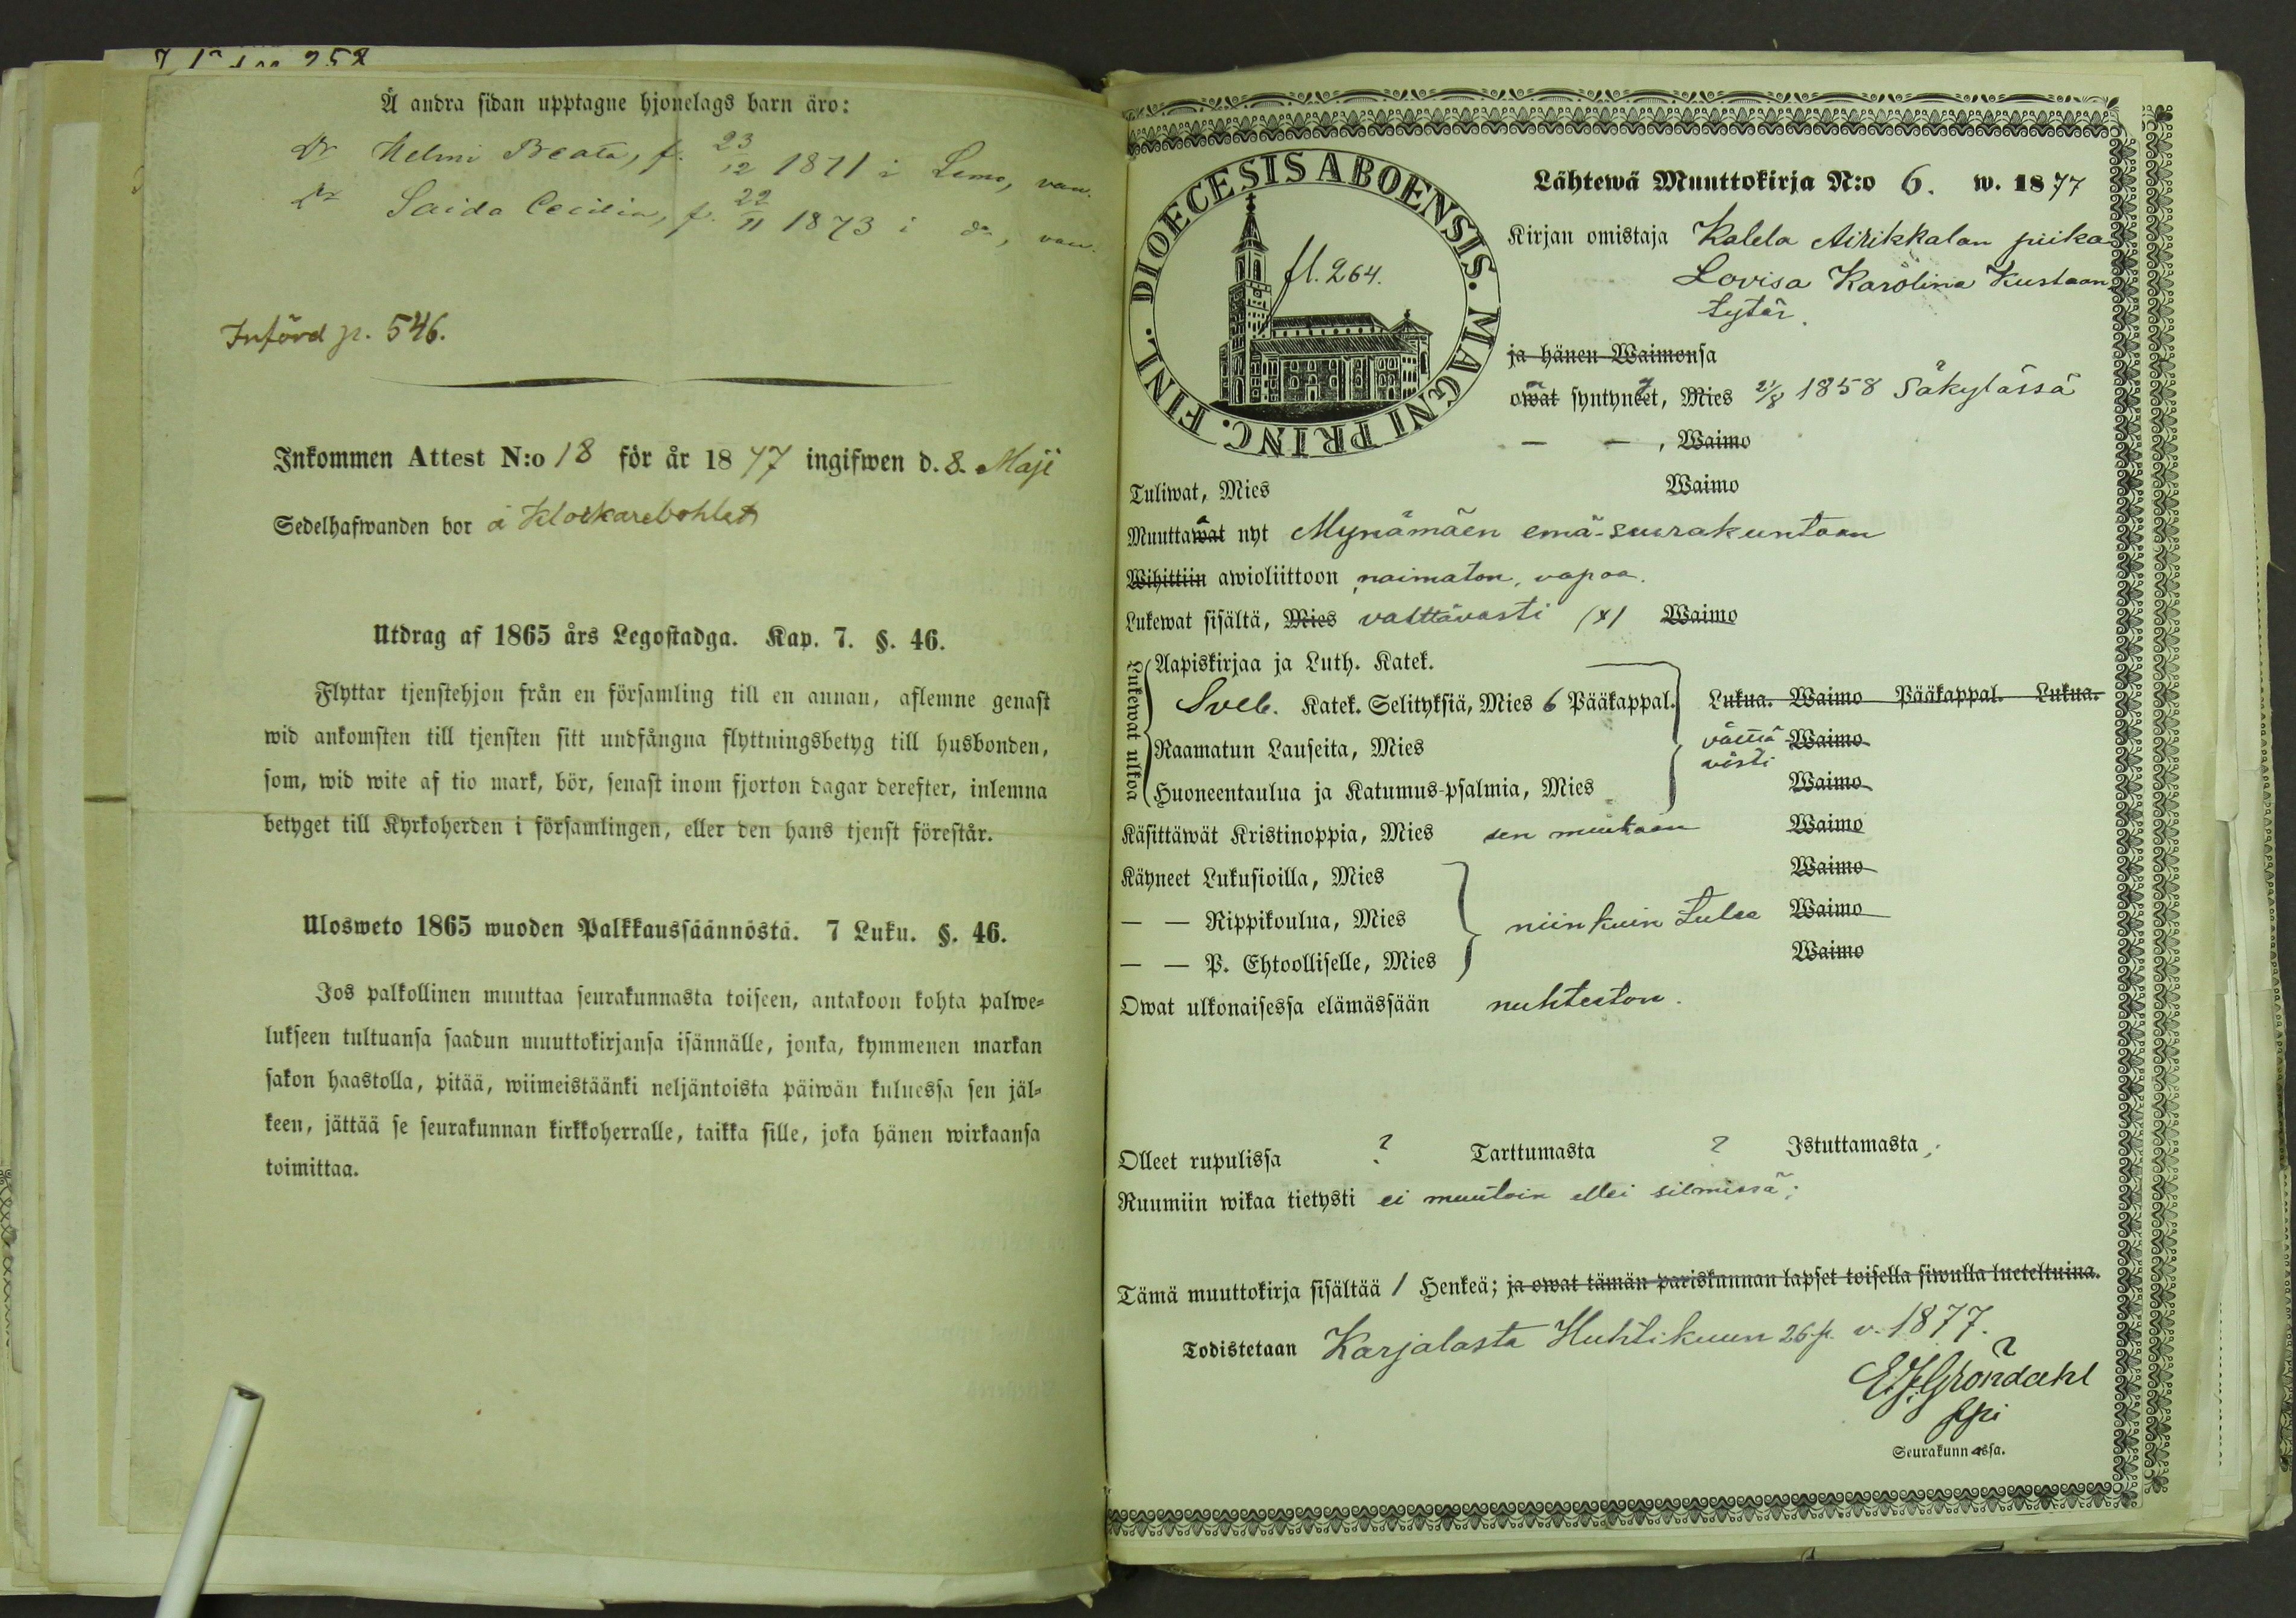 Å andra sidan upptagne hjonelags barn äro:
Dr Helmi Beata, f. 23/12 1871 i Lemo, vacc.
Dr Saida Cecilia, f. 22/11 1873 i do, vacc.
Införd p. 546.
Inkommen Attest N:o 18 för år 1877 ingifwen d. 8. Maji
Sedelhafwanden bor å Klockarebohlet
Utdrag af 1865 års Legostadga. Kap. 7. §. 46.
Flyttar tjenstehjon från en församling till en annan, aflemne genast
wid ankomsten till tjensten sitt undfångna flyttningsbetyg till husbonden,
som, wid wite af tio mark, bör, senast inom fjorton dagar derefter, inlemna
betyget till Kyrkoherden i församlingen, eller den hans tjenst förestår.
Ulosweto 1865 wuoden Palkkaussäännöstä. 7 Luku. §. 46.
Jos palkollinen muuttaa seurakunnasta toiseen, antakoon kohta palwe-
lukseen tultuansa saadun muuttokirjansa isännälle, jonka, kymmenen markan
sakon haastolla, pitää, wiimeistäänki neljäntoista päiwän kuluessa sen jäl-
keen, jättää se seurakunnan kirkkoherralle, taikka sille, joka hänen wirkaansa
toimittaa.
DIOECESIS ABOENSIS. MAGNI PRINC. FINL.
fl. 264.
Lähtewä Muuttokirja N:o 6. w. 1877
Kirjan omistaja Kalela Airikkalan piika
Lovisa Karolina Kustaan
tytär.
ja hänen Waimonsa
owat syntyneet, Mies 21/8 1858 Säkylässä
— — , Waimo
Tuliwat, Mies Waimo
Muuttawat nyt Mynämäen emä-seurakuntaan
Wihittiin awioliittoon naimaton, vapaa.
Lukewat sisältä, Mies välttävästi (x) Waimo
Lukewat ulkoa
Aapiskirjaa ja Luth. Katek.
Sveb. Katek. Selityksiä, Mies 6 Pääkappal. Lukua. Waimo Pääkappal. Lukua.
Raamatun Lauseita, Mies Waimo
Huoneentaulua ja Katumus-psalmia, Mies Waimo
Käsittäwät Kristinoppia, Mies sen mukaan Waimo
Käyneet Lukusioilla, Mies Waimo
— — Rippikoulua, Mies niinkuin tulee Waimo
— — P. Ehtoolliselle, Mies Waimo
Owat ulkonaisessa elämässään nuhteeton.
Olleet rupulissa ? Tarttumasta ? Istuttamasta
Ruumiin wikaa tietysti ei muutoin ellei silmissä;
Tämä muuttokirja sisältää 1 Henkeä; ja owat tämän pariskunnan lapset toisella siwulla lueteltuina.
Todistetaan Karjalasta Huhtikuun 26 p. v. 1877.
E. J. Gröndahl
Seurakunnassa.